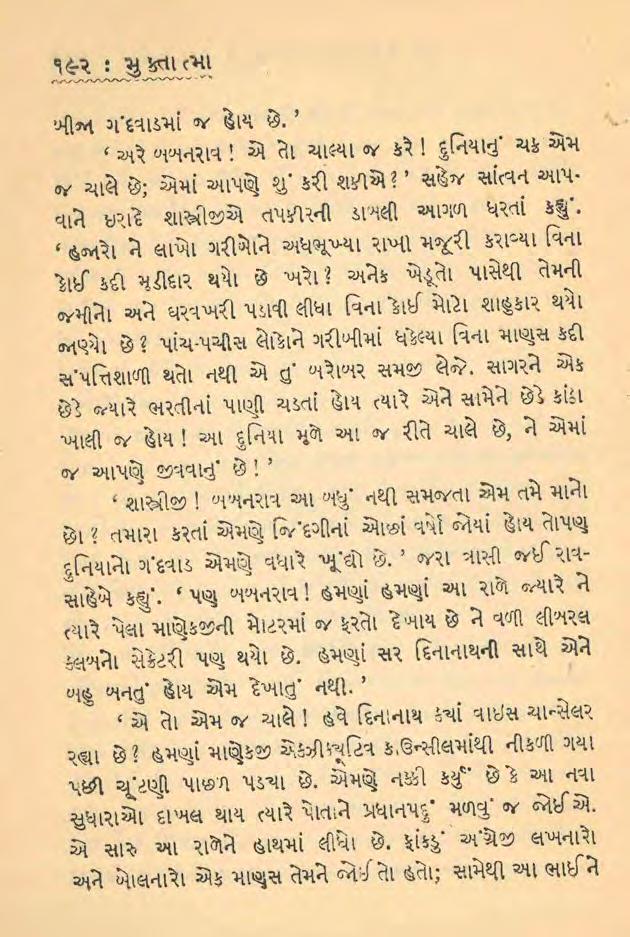 ૧૯૨ : મુક્તાત્મા
બીજા ગંદવાડમાં જ હોય છે.’
‘ અરે બબનરાવ ! એ તો ચાલ્યા જ કરે ! દુનિયાનું ચક્ર એમ
જ ચાલે છે; એમાં આપણે શું કરી શકીએ ?’ સહેજ સાંત્વન આપ-
વાને ઇરાદે શાસ્ત્રીજીએ તપકીરની ડાબલી આગળ ધરતાં કહ્યું.
‘ હજારો ને લાખો ગરીબોને અધભૂખ્યા રાખી મજૂરી કરાવ્યા વિના
કોઈ કદી મૂડીદાર થયો છે ખરો ? અનેક ખેડૂતો પાસેથી તેમની
જમીનો અને ઘરવખરી પડાવી લીધા વિના કોઈ મોટો શાહુકાર થયો
જાણ્યો છે ? પાંચ-પચીસ લોકોને ગરીબીમાં ધકેલ્યા વિના માણસ કદી
સંપત્તિશાળી થતો નથી એ તું બરોબર સમજી લેજે. સાગરને એક
છેડે જ્યારે ભરતીનાં પાણી ચડતાં હોય ત્યારે એને સામેને છેડે કાંઠા
ખાલી જ હોય ! આ દુનિયા મૂળે આ જ રીતે ચાલે છે, ને એમાં
જ આપણે જીવવાનું છે ! ’
‘ શાસ્ત્રીજી ! બબનરાવ આ બધું નથી સમજતા એમ તમે માનો
છો ? તમારા કરતાં એમણે જિંદગીનાં ઓછાં વર્ષો જોયાં હોય તોપણ
દુનિયાનો ગંદવાડ એમણે વધારે ખૂંદ્યો છે. ’ જરા ત્રાસી જઈ રાવ-
સાહેબે કહ્યું. ‘ પણ બબનરાવ ! હમણાં હમણાં આ રાળે જ્યારે ને
ત્યારે પેલા માણેકજીની મોટરમાં જ ફરતો દેખાય છે ને વળી લીબરલ
ક્લબનો સેક્રેટરી પણ થયો છે. હમણાં સર દિનાનાથની સાથે એને
બહુ બનતું હોય એમ દેખાતું નથી. ’
‘ એ તો એમ જ ચાલે ! હવે દિનાનાથ ક્યાં વાઇસ ચાન્સેલર
રહ્યા છે ? હમણાં માણેકજી એક્ઝીક્યૂટિવ કાઉન્સીલમાંથી નીકળી ગયા
પછી ચૂંટણી પાછળ પડ્યા છે. એમણે નક્કી કર્યું છે કે આ નવા
સુધારાઓ દાખલ થાય ત્યારે પોતાને પ્રધાનપદું મળવું જ જોઈએ.
એ સારુ આ રાળેને હાથમાં લીધો છે. ફાંકડું અંગ્રેજી લખનારો
અને બોલનારો એક માણસ તેમને જોઈતો હતો; સામેથી આ ભાઈને